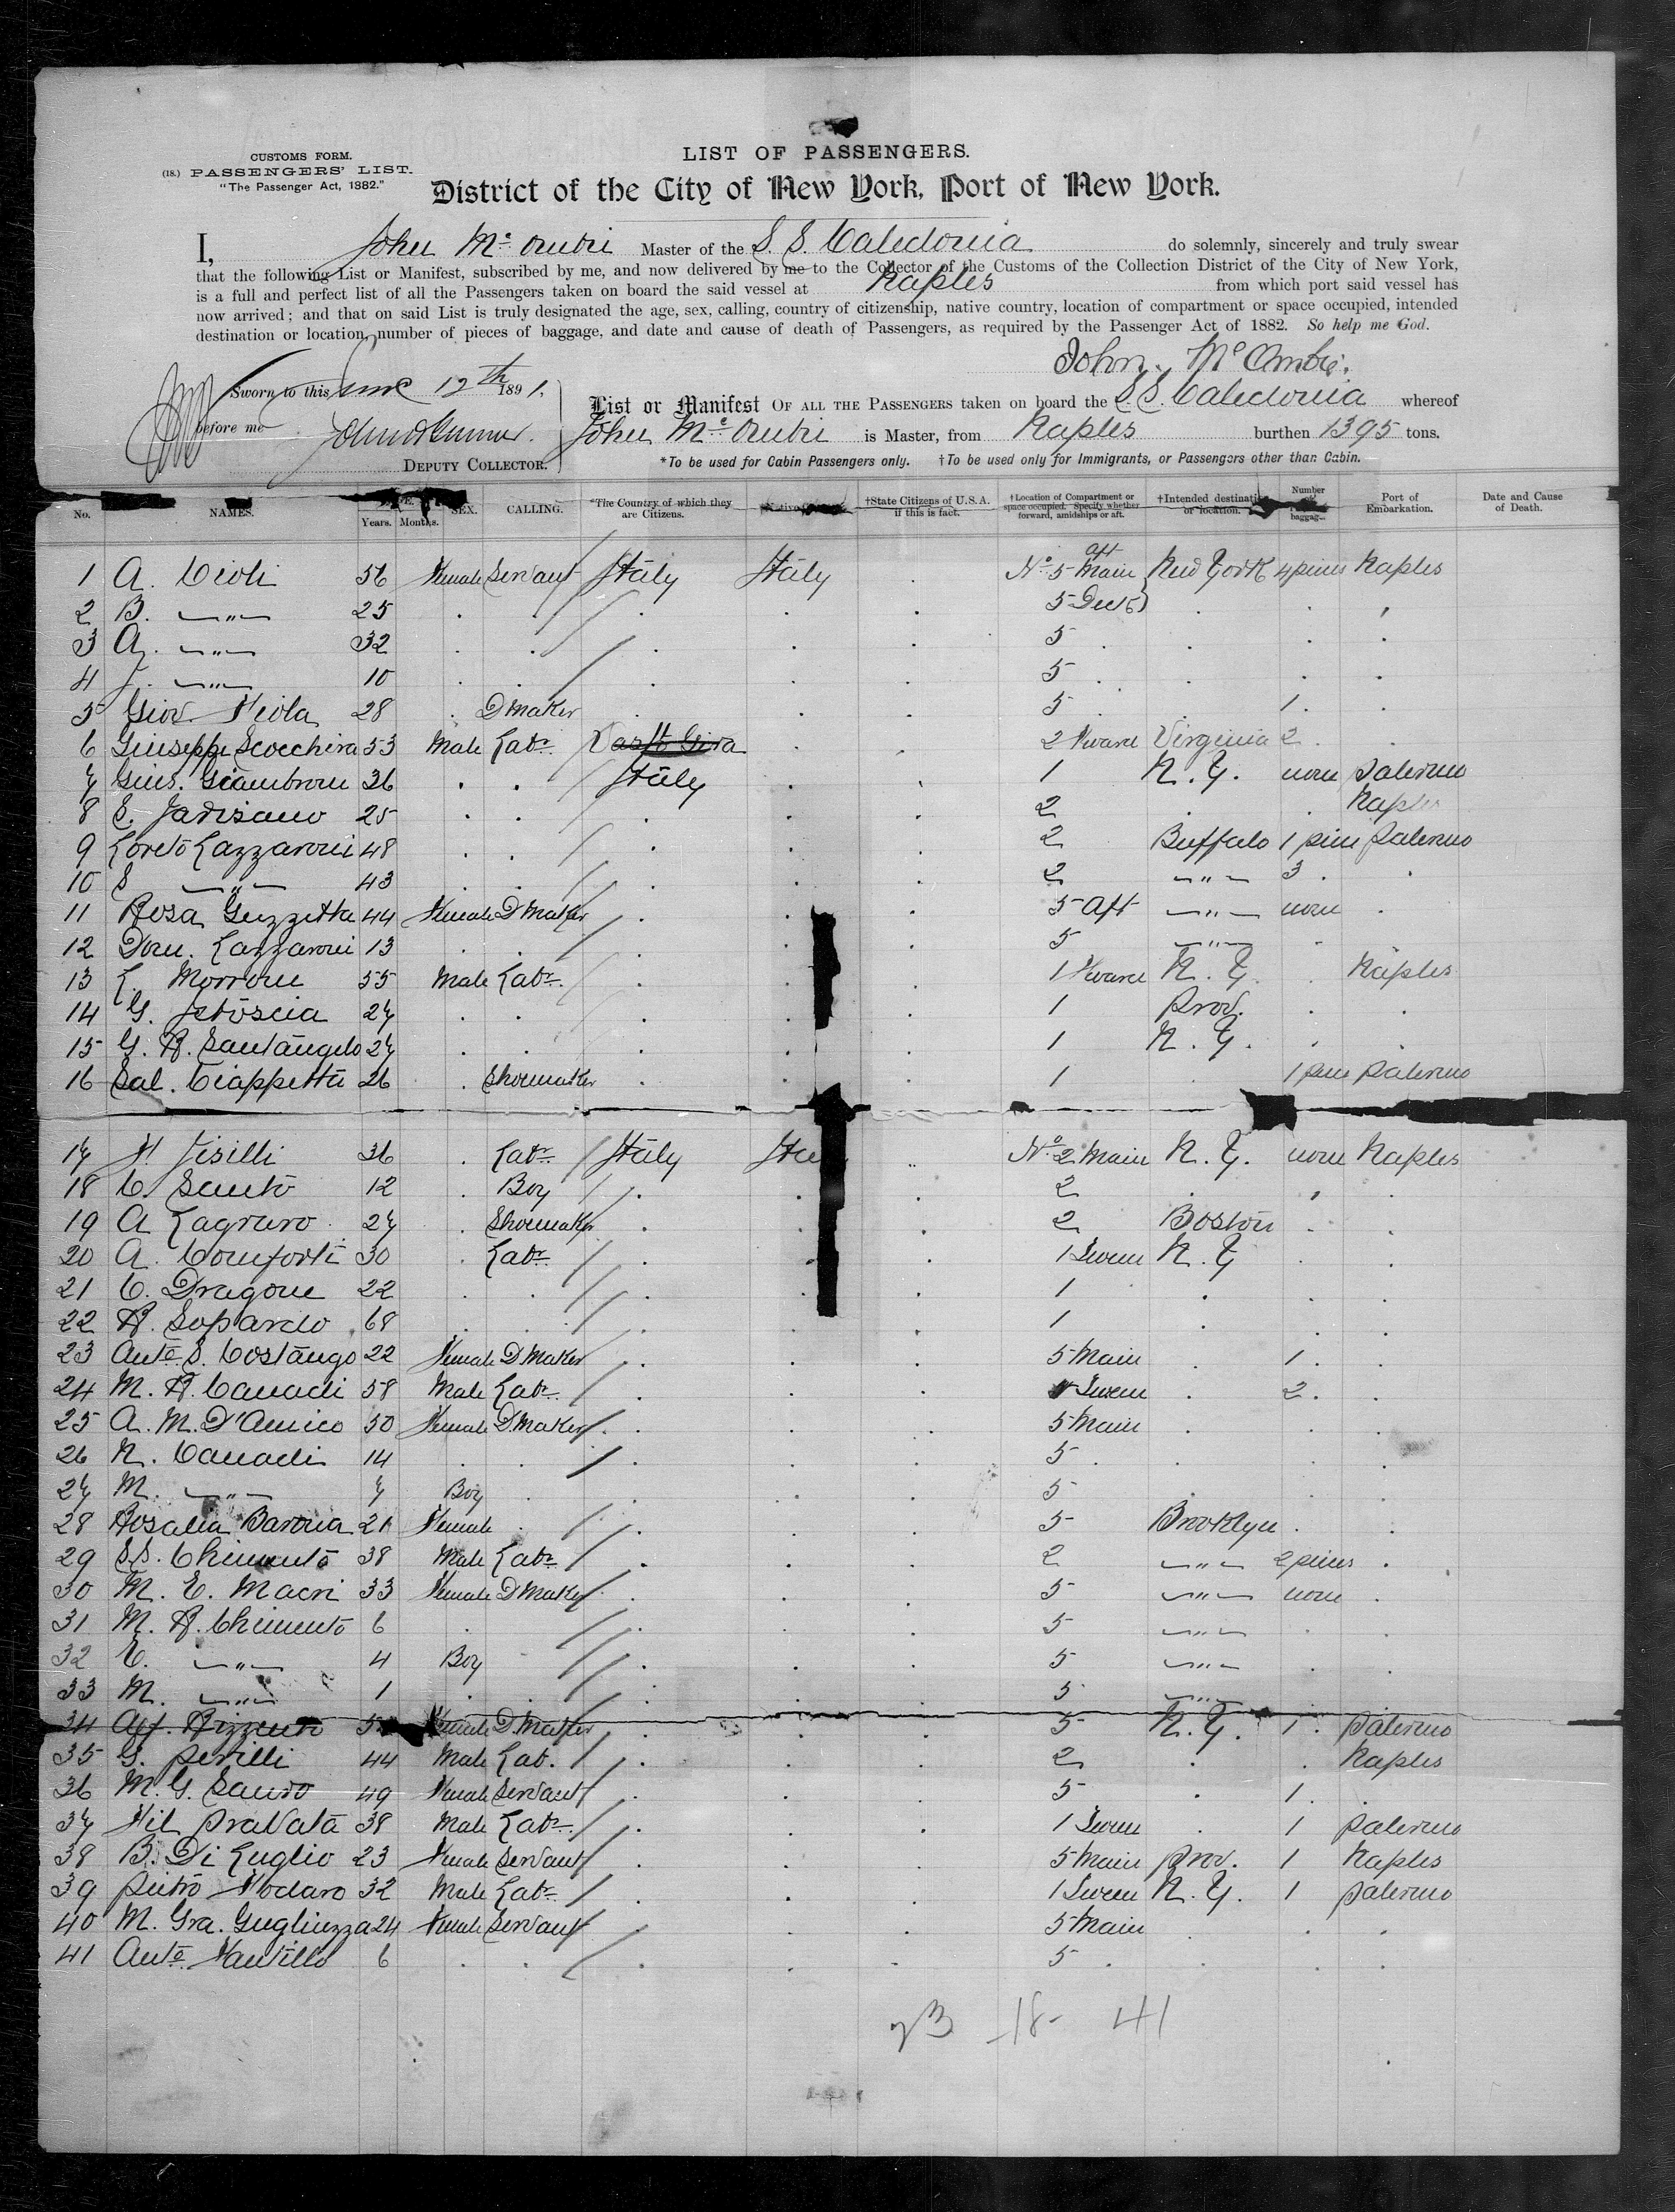 CUSTOMS FORM.
(18.) PASSENGERS' LIST.
"The Passenger Act, 1882."
LIST OF PASSENGERS.
District of the City of New York, Port of New York.
I, John Mc Master of the S. S. Caledonia do solemnly, sincerely and truly swear
that the following List or Manifest, subscribed by me, and now delivered by me to the Collector of the Customs of the Collection District of the City of New York,
is a full and perfect list of all the Passengers taken on board the said vessel at Naples from which port said vessel has
now arrived; and that on said List is truly designated the age, sex, calling, country of citizenship, native country, location of compartment or space occupied, intended
destination or location, number of pieces of baggage, and date and cause of death of Passengers, as required by the Passenger Act of 1882. So help me God.
John
Sworn to this June 12th 1891.
before me
DEPUTY COLLECTOR.
List or Manifest OF ALL THE PASSENGERS taken on board the S.S. Caledonia whereof
John Mc is Master, from Naples burthen 1395 tons.
*To be used for Cabin Passengers only. †To be used only for Immigrants, or Passengers other than Cabin.
No. NAMES. Years. Months. SEX. CALLING. *The Country of which they are Citizens. Native †State Citizens of U.S.A. if this is fact. †Location of Compartment or space occupied. Specify whether forward, amidships or aft. †Intended destination or location. Number baggage Port of Embarkation. Date and Cause of Death.
1 A. Cioli 56 Female Servant Italy Italy No. 5 Main aft New York 4 pieces Naples
2 B. —"— 25 5 Deck
3 A. —"— 32 5
4 J. —"— 10 5
5 Giov. Viola 28 D maker 5 1
6 Giuseppe Scocchira 53 Male Labr. 2 Forward Virginia 2
7 Gius. Giambrone 36 Italy 1 N.Y. none Palermo
8 S. 25 2 Naples
9 Loreto Lazzaroni 48 2 Buffalo 1 piece Palermo
10 S —"— 43 2 —"— 3
11 Rosa Guzzetta 44 Female D Maker 5 Aft —"— none
12 Dom. Lazzaroni 13 5 —"—
13 L. Morrone 55 Male Labr. 1 Forward N.Y. Naples
14 G. 27 1 Prov.
15 G. R. Santangelo 27 1 N.Y.
16 Sal. Ciappetta 26 Shoemaker 1 1 piece Palermo
17 F. Fisilli 36 Labr. Italy No. 2 Main N.Y. none Naples
18 C. Santo 12 Boy 2
19 A 27 Shoemaker 2 Boston
20 A. Comforti 30 Labr. 1 N.Y.
21 C. Dragone 22 1
22 R. Sopardo 68 1
23 Anto. S. Costango 22 Female D Maker 5 Main 1
24 M. R. Canadi 58 Male Labr. 2
25 A. M. D'Amico 50 Female D. Maker 5 Main
26 N. Canadi 14 5
27 M. —"— 7 Boy 5
28 Rosalia Baronia 21 Female 5 Brooklyn
29 S.S. Chimento 38 Male Labr. 2 —"— 2 pieces
30 M. E. Macri 33 Female D Maker 5 —"— none
31 M. R. Chimento 6 5 —"—
32 C. —"— 4 Boy 5 —"—
33 M. —"— 1 5 —"—
34 Aff. Rizzuto Female D Maker 5 N.Y. 1 Palermo
35 G. Perilli 44 Male Lab. 2 Naples
36 M. G. Sauro 49 Female Servant 5 1
37 Fil Pravata 38 Male Labr. 1 1 Palermo
38 B. Di Luglio 23 Female Servant 5 Main Prov. 1 Naples
39 Pietro Fodaro 32 Male Labr. 1 N.Y. 1 Palermo
40 M. Gra. Gugliuzza 24 Female Servant 5 Main
41 Anto. 6 5
23 - 18 - 41